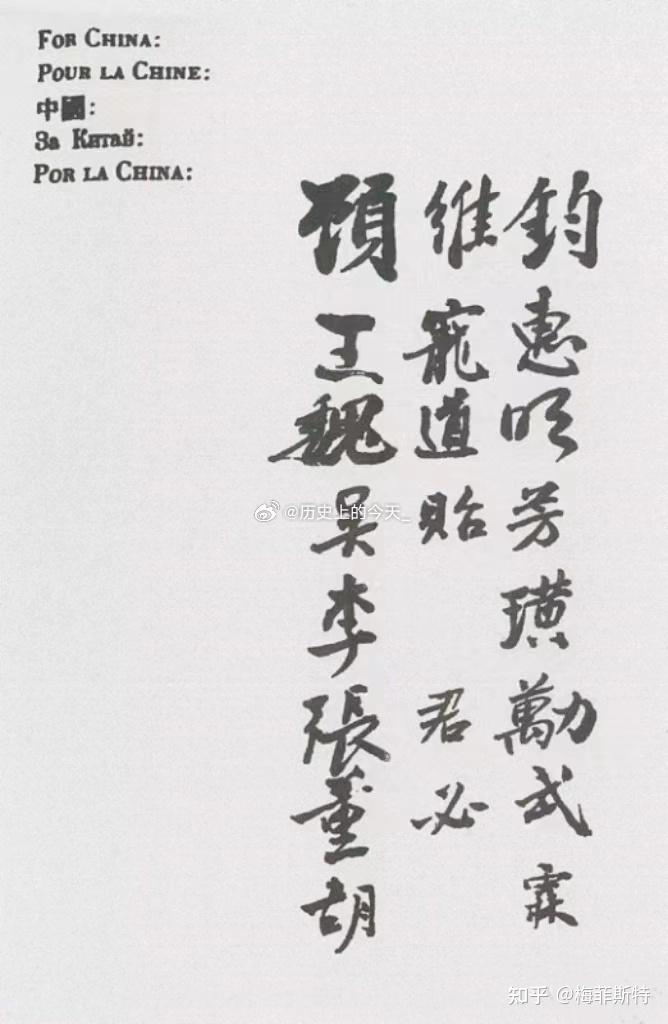 FOR CHINA:
POUR LA CHINE:
中國:
За Китай:
POR LA CHINA:
顧維鈞
王寵惠
魏道明
吳貽芳
李璜
張君勱
董必武
胡霖
@历史上的今天_
知乎 @梅菲斯特